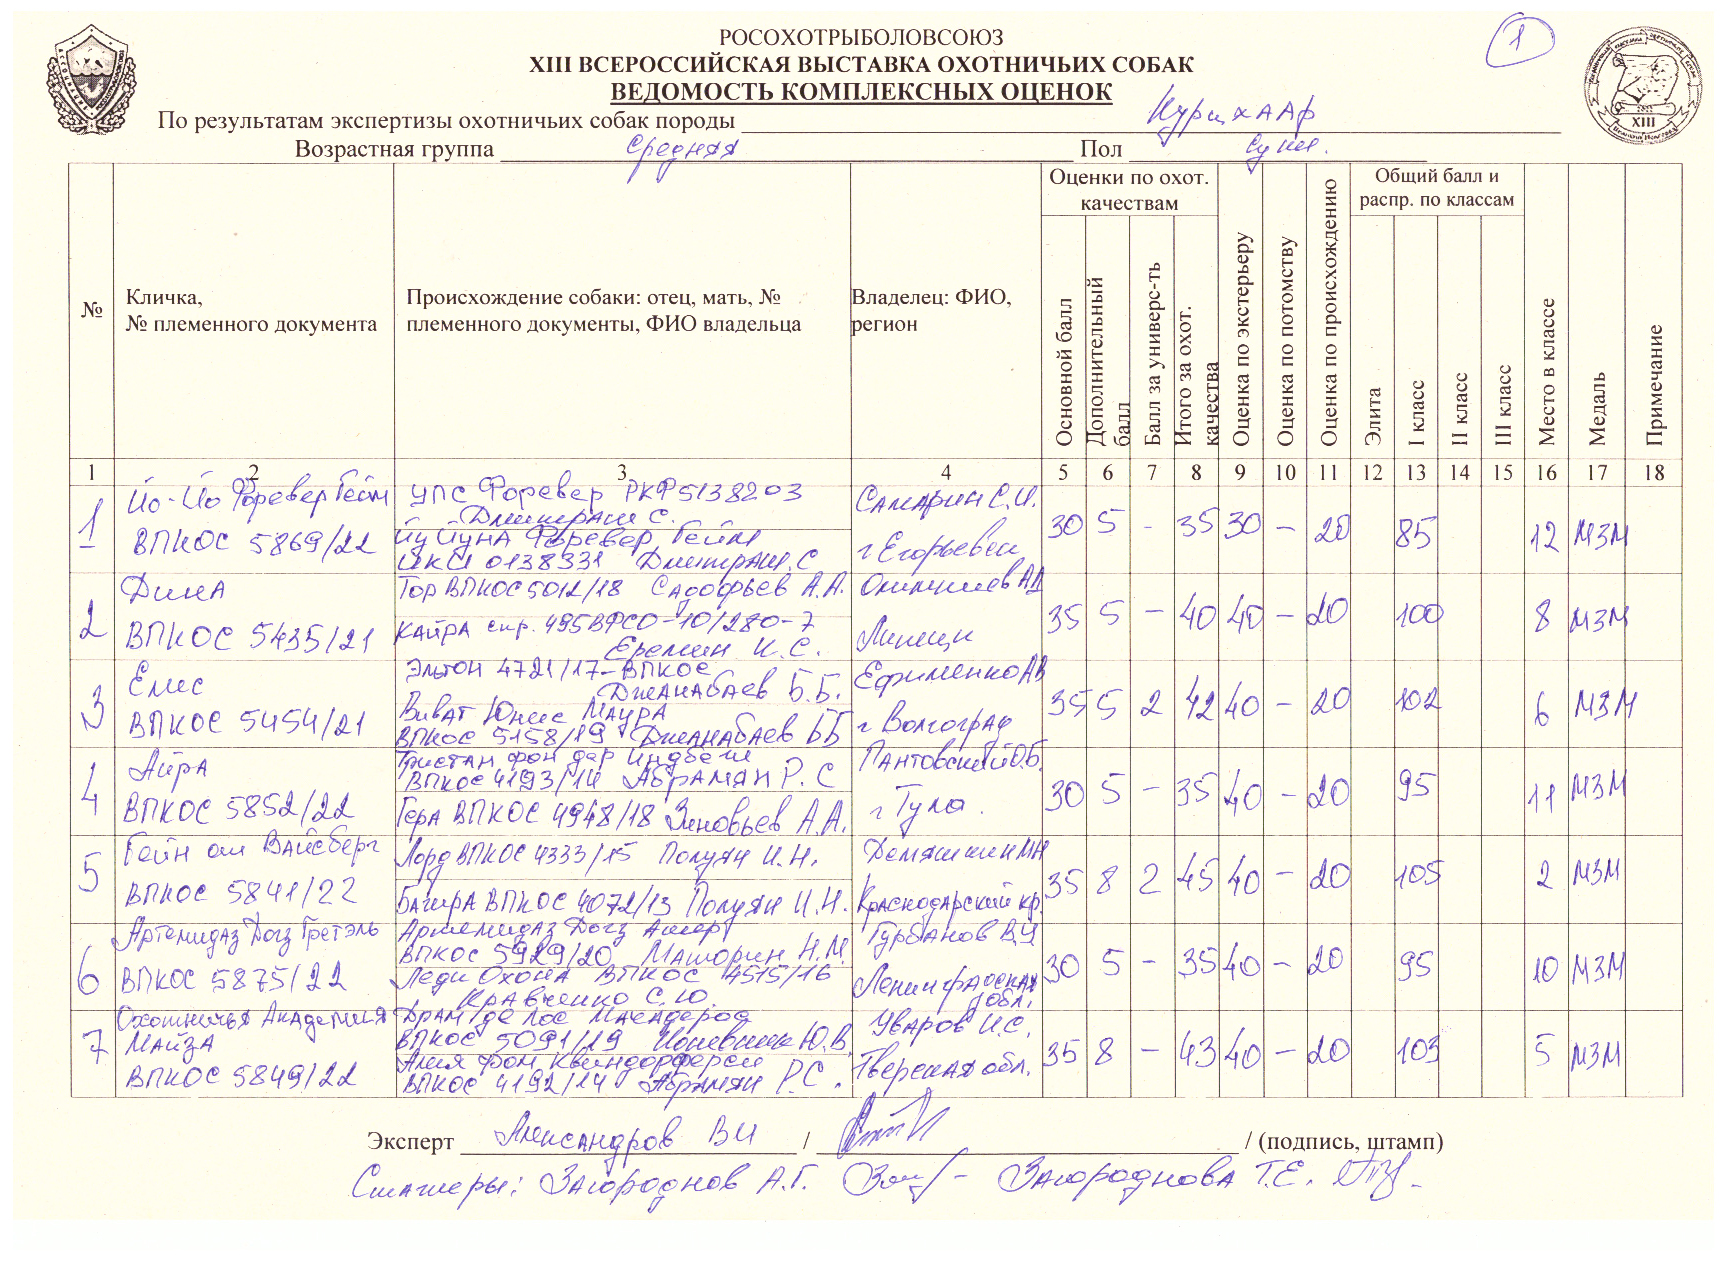 РОСОХОТРЫБОЛОВСОЮЗ
1
XIII ВСЕРОССИЙСКАЯ ВЫСТАВКА ОХОТНИЧЬИХ СОБАК
ВЕДОМОСТЬ КОМПЛЕКСНЫХ ОЦЕНОК
По результатам экспертизы охотничьих собак породы Курцхаар
Возрастная группа средняя Пол суки.
XIII
№
Кличка,
№ племенного документа
Происхождение собаки: отец, мать, №
племенного документы, ФИО владельца
Владелец: ФИО,
регион
Оценки по охот.
качествам
Основной балл
Дополнительный
балл
Балл за универс-ть
Итого за охот.
качества
Оценка по экстерьеру
Оценка по потомству
Оценка по происхождению
Общий балл и
распр. по классам
Элита
I класс
II класс
III класс
Место в классе
Медаль
Примечание
1 2 3 4 5 6 7 8 9 10 11 12 13 14 15 16 17 18
1
Йо-Йо Форевер Гейм
ВПКОС 5869/22
УПС Форевер РКФ5138203
Дмитраш С.
Йу Йуна Форевер Гейм
0138331 Дмитраш.С
Самарин С.И.
г Егорьевск
30 5 - 35 30 - 20 85 12 МЗМ
2
Дина
ВПКОС 5435/21
Тор ВПКОС 5012/18 Садофьев А.А.
Кайра спр. 495ВРСО-10/280-7
Еремин К.С.
Липецк
35 5 - 40 40 - 20 100 8 МЗМ
3
Елис
ВПКОС 5454/21
Элтон 4721/17-ВПКОС
Джанабаев Б.Б.
Виват Юнис Маура
ВПКОС 5158/19 Джанабаев ББ
Ефименко АВ
г Волгоград
35 5 2 42 40 - 20 102 6 МЗМ
4
Айра
ВПКОС 5852/22
Тристан фон дер Индбеш
ВПКОС 4193/14 Абрамян Р. С
Гера ВПКОС 4948/18 Зиновьев А.А.
Пантовский О.Б.
г Тула.
30 5 - 35 40 - 20 95 11 МЗМ
5
Гейн ом Вайсберг
ВПКОС 5841/22
Лорд ВПКОС 4333/15 Полуян И.Н.
Багира ВПКОС 4072/13 Полуян И.Н.
Демяшкин МН
Краснодарский кр.
35 8 2 45 40 - 20 105 2 МЗМ
6
Артемидаз Догз Гретэль
ВПКОС 5875/22
Артемидаз Догз Ашер
ВПКОС 5929/20 Маторин Н.М.
Леди Охона ВПКОС 4515/16
Кравченко С.Ю.
Гурбанов В.И
Ленинградская
обл.
30 5 - 35 40 - 20 95 10 МЗМ
7
Охотничья Академия
Майза
ВПКОС 5849/22
Драм де Лос Макадерос
ВПКОС 5091/19 Ю.В.
Амия фон Квиндорферси
ВПКОС 4192/14 Абрамян Р.С.
Уваров И.С.
Тверская обл.
35 8 - 43 40 - 20 103 5 МЗМ
Эксперт Александров ВИ / / (подпись, штамп)
Стажеры: Загороднов А.Г. Загороднова Т.Е.